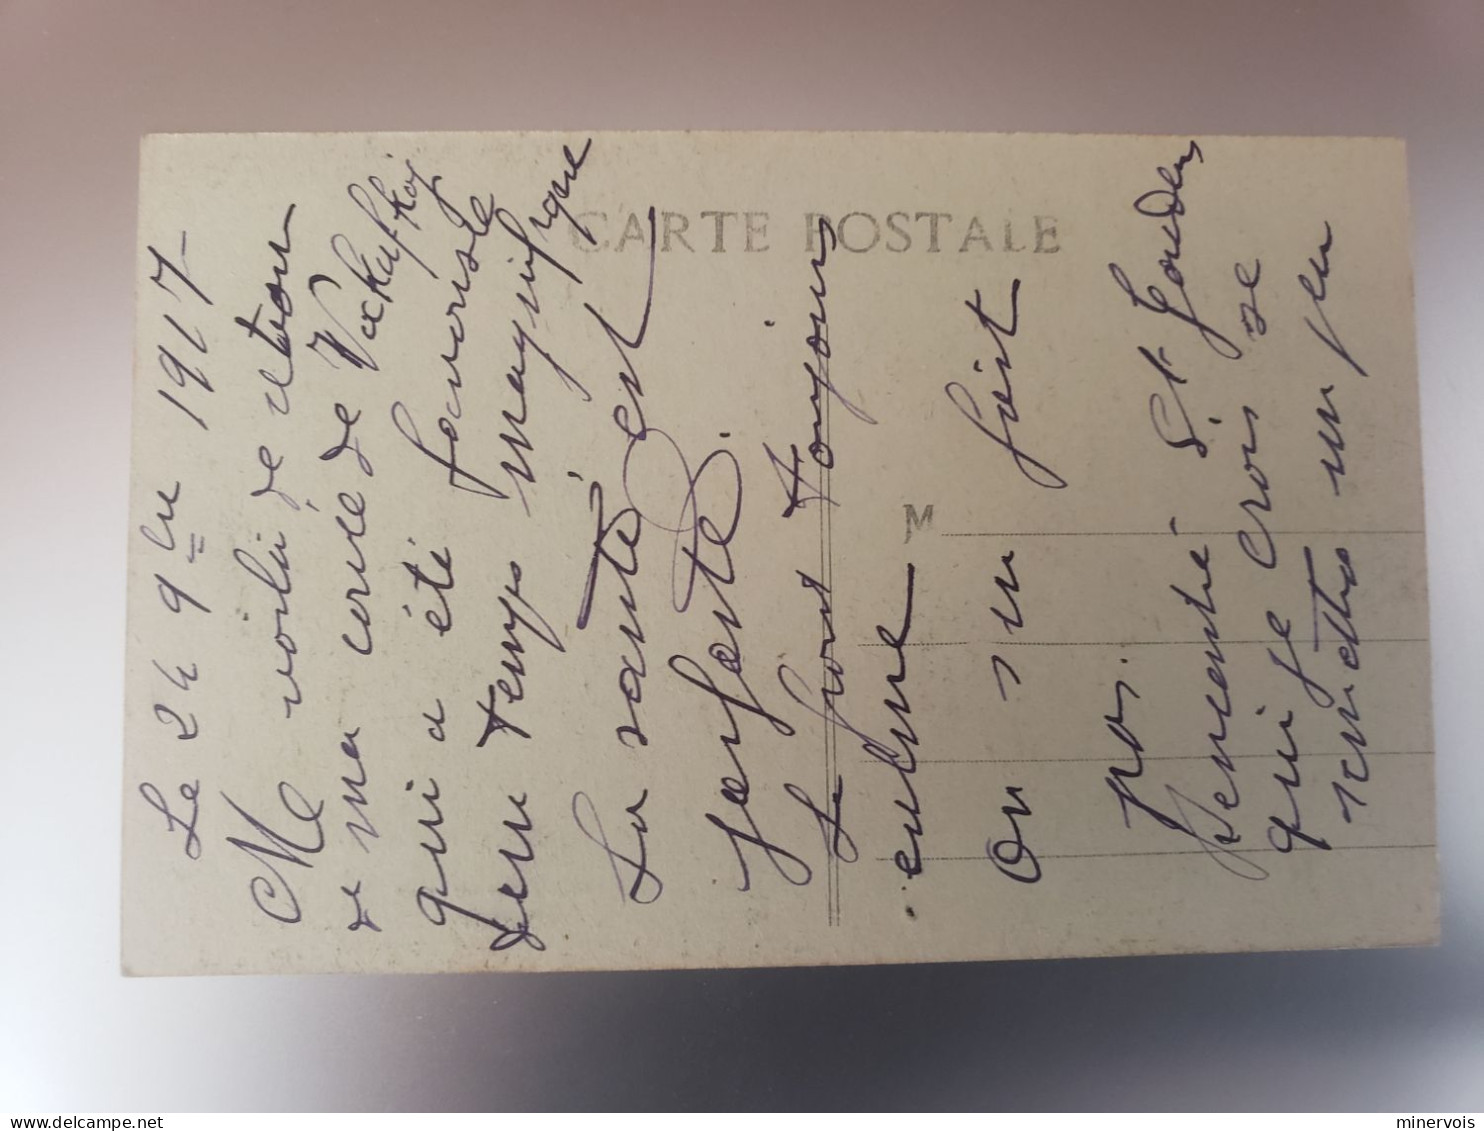 Le 24 9bre 1917
Me voilà de retour
de ma corvée de Vakufkoj
qui a été favorisée
d'un temps magnifique
La santé est
parfaite.
Le front toujours
calme
On s'en fait
pas.
Rencontré St Gaudens
qui je crois se
remettra un peu
CARTE POSTALE
M
delcampe.net
minervois